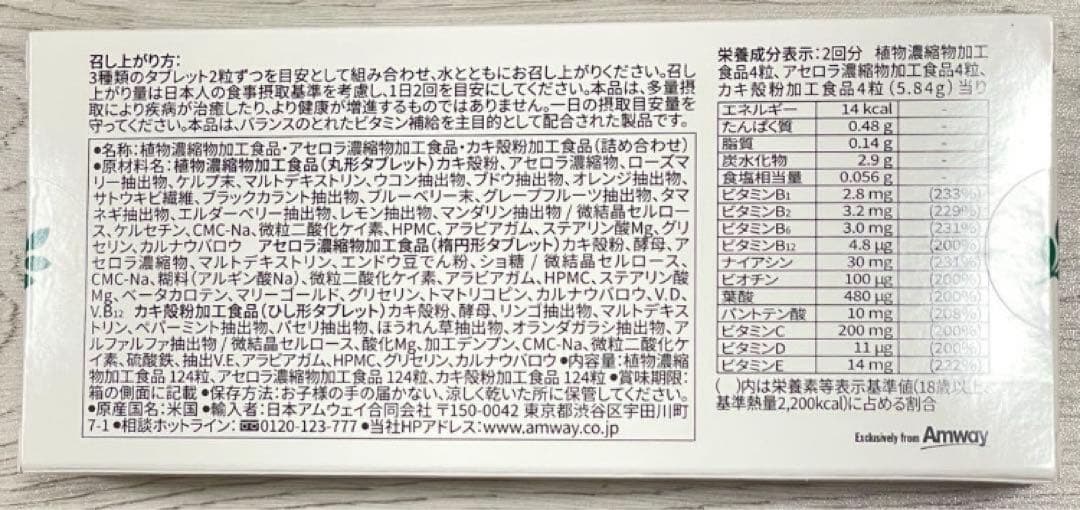 召し上がり方:
3種類のタブレット2粒ずつを目安として組み合わせ、水とともにお召し上がりください。召し
上がり量は日本人の食事摂取基準を考慮し、1日2回を目安にしてください。本品は、多量摂
取により疾病が治癒したり、より健康が増進するものではありません。一日の摂取目安量を
守ってください。本品は、バランスのとれたビタミン補給を主目的として配合された製品です。
●名称:植物濃縮物加工食品・アセロラ濃縮物加工食品・カキ殻粉加工食品(詰め合わせ)
●原材料名:植物濃縮物加工食品(丸形タブレット)カキ殻粉、アセロラ濃縮物、ローズマ
リー抽出物、ケルプ末、マルトデキストリン、ウコン抽出物、ブドウ抽出物、オレンジ抽出物、
サトウキビ繊維、ブラックカラント抽出物、ブルーベリー末、グレープフルーツ抽出物、タマ
ネギ抽出物、エルダーベリー抽出物、レモン抽出物、マンダリン抽出物/微結晶セルロー
ス、ケルセチン、CMC-Na、微粒二酸化ケイ素、HPMC、アラビアガム、ステアリン酸Mg、グリ
セリン、カルナウバロウ アセロラ濃縮物加工食品(楕円形タブレット)カキ殻粉、酵母、ア
セロラ濃縮物、マルトデキストリン、エンドウ豆でん粉、ショ糖/微結晶セルロース、
CMC-Na、糊料(アルギン酸Na)、微粒二酸化ケイ素、アラビアガム、HPMC、ステアリン酸
Mg、ベータカロテン、マリーゴールド、グリセリン、トマトリコピン、カルナウバロウ、V.D、
V.B12 カキ殻粉加工食品(ひし形タブレット)カキ殻粉、酵母、リンゴ抽出物、マルトデキス
トリン、ペパーミント抽出物、パセリ抽出物、ほうれん草抽出物、オランダガラシ抽出物、ア
ルファルファ抽出物/微結晶セルロース、酸化Mg、加工デンプン、CMC-Na、微粒二酸化ケ
イ素、硫酸鉄、抽出V.E、アラビアガム、HPMC、グリセリン、カルナウバロウ ●内容量:植物濃縮
物加工食品 124粒、アセロラ濃縮物加工食品 124粒、カキ殻粉加工食品 124粒 ●賞味期限:
箱の側面に記載 ●保存方法:お子様の手の届かない、涼しく乾いた所に保管してください。
●原産国名:米国 ●輸入者:日本アムウェイ合同会社 〒150-0042 東京都渋谷区宇田川町
7-1 ●相談ホットライン:0120-123-777 ●当社HPアドレス:www.amway.co.jp
栄養成分表示:2回分 植物濃縮物加工
食品4粒、アセロラ濃縮物加工食品4粒、
カキ殻粉加工食品4粒(5.84g)当り
エネルギー 14 kcal -
たんぱく質 0.48 g -
脂質 0.14 g -
炭水化物 2.9 g -
食塩相当量 0.056 g -
ビタミンB1 2.8 mg (233%)
ビタミンB2 3.2 mg (229%)
ビタミンB6 3.0 mg (231%)
ビタミンB12 4.8 μg (200%)
ナイアシン 30 mg (231%)
ビオチン 100 μg (200%)
葉酸 480 μg (200%)
パントテン酸 10 mg (208%)
ビタミンC 200 mg (200%)
ビタミンD 11 μg (200%)
ビタミンE 14 mg (222%)
( )内は栄養素等表示基準値(18歳以上、
基準熱量2,200kcal)に占める割合
Exclusively from Amway